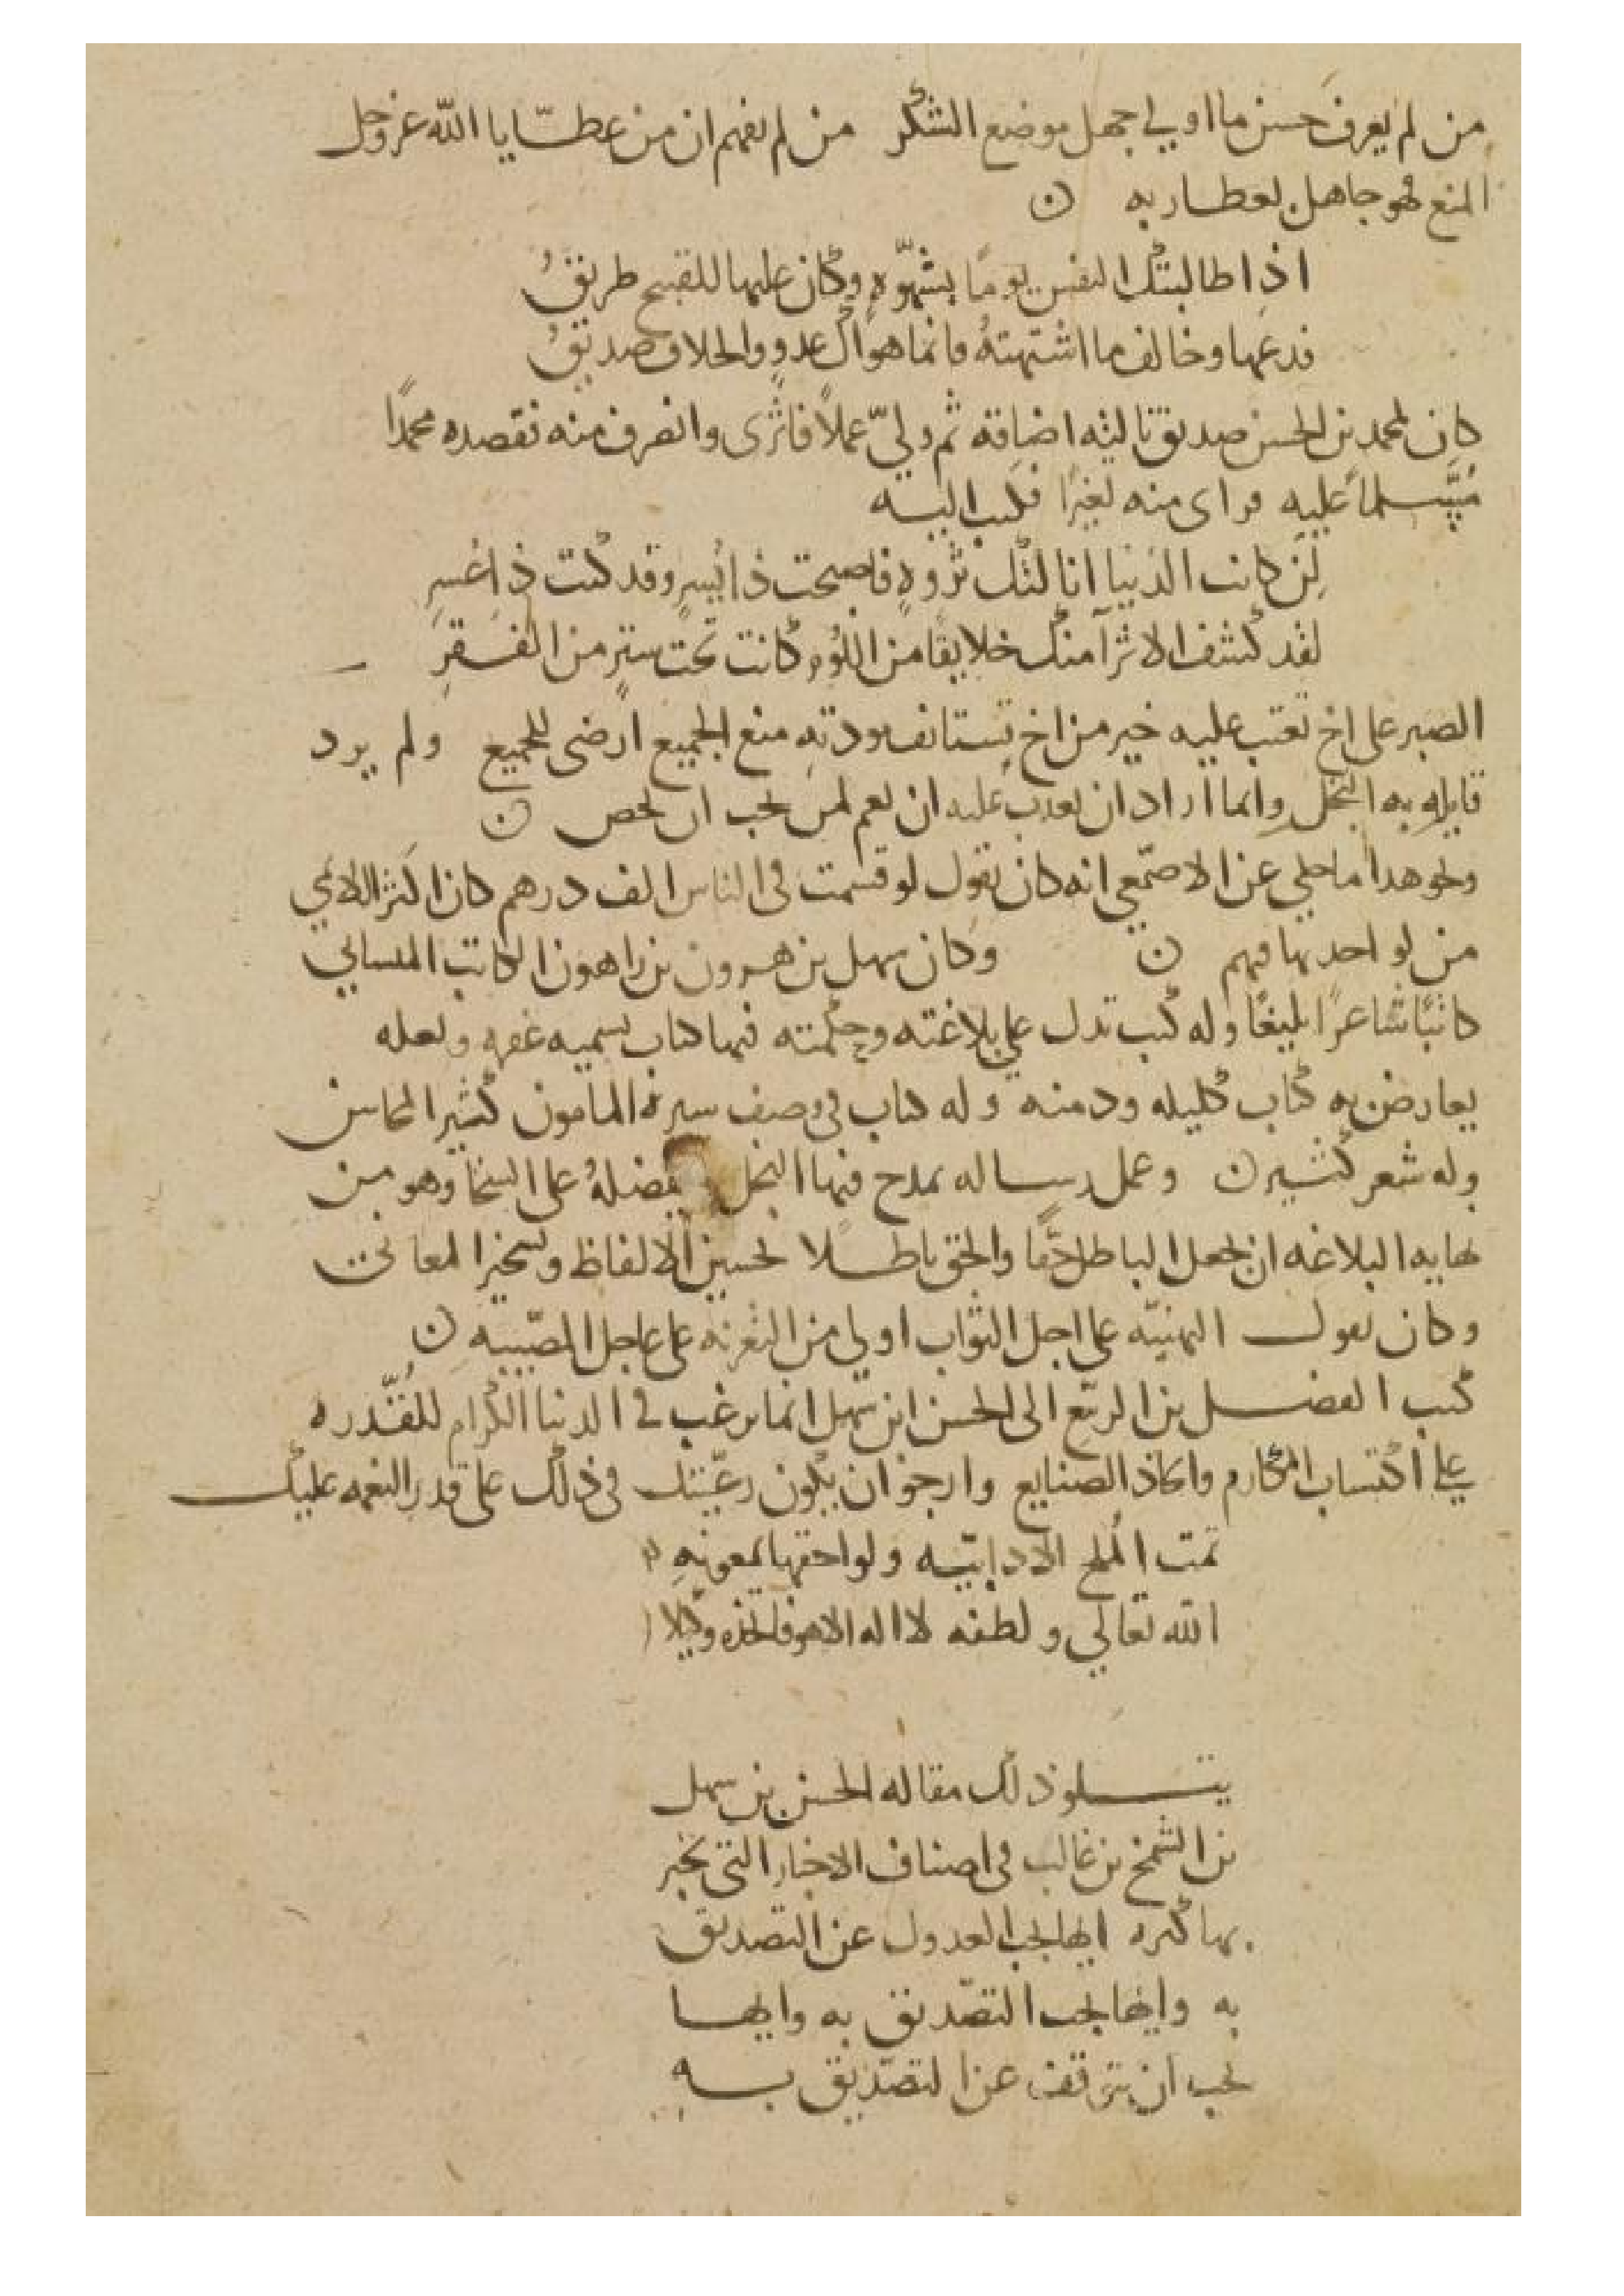 من لم يعرف حسن ما اولي جهل موضع الشكر من لم يفهم ان من عطايا الله عز وجل
المنع فهو جاهل بعطا ربه ن
اذا طالبتك النفس يومًا بشهوّةٍ وكان عليها للقبيح طريقُ
فدعها وخالف ما اشتهته فانما هواك عدو والخلاف صديقُ
كان لمحمد بن الحسن صديق نالته اضاقة ثم ولي عملاً فاثرى وانصرف منه فقصده محمدًا
مسلمًا عليه فراى منه تغيرًا فكتب اليه
لئن كانت الدنيا انالتك ثروهٍ فاصبحت ذا يسرٍ وقد كنت ذا عسرِ
لقد كشف الاثرآ منك خلايقًا من اللؤم كانت تحت سترٍ من الفقرِ
الصبر على اخ تعتب عليه خير من اخ تستانف ودته منع الجميع ارضى للجميع ولم يرد
قايله به البخل وانما اراد ان يعم لمن يحب ان يخص ن
ونحو هدا ما حكي عن الاصمعي انه كان يقول لو قسمت في الناس الف درهم كان اكثر
من لو اخدتها منهم ن وكان سهل بن هرون بن راهون الكاتب
كاتبًا شاعرًا بليغًا وله كتب تدل على بلاغته وحكمته فمنها كتاب يسميه عفره وثعله
يعارض به كتاب كليله ودمنه وله كتاب في وصف سيرة المامون كثير المحاسن
وله شعر كثير ن وعمل رساله يمدح فيها البخل ويفضلهُ على السخا وهو من
نهايه البلاغه ان يجعل الباطل حقًا والحق باطلا لحسين الالفاظ المعاني
وكان يقول التهنيّه على اجل الثواب اولى من التعزيه على عاجل المصيبه ن
كتب الفضل بن الربيع الى الحسن ابن سهل انما يرغب في الدنيا الكرام للقدره
علي اكتساب المكارم واتخاذ الصنايع وارجوا ان يكون رغبتك في ذلك على قدر النعمه عليك
تمت الملح الادابيّه ولواحقها بمعونهِ
الله تعالي ولطفه لا اله الا هو فاتخذه وكيلا
يتلو ذلك مقاله الحسن بن سهل
بن السمح بن غالب في اصناف الاخبار التي يخبر
بها كثره ايها يجب العدول عن التصديق
به وايها يجب التصديق به وايها
يجب ان يتوقف عن التصديق به